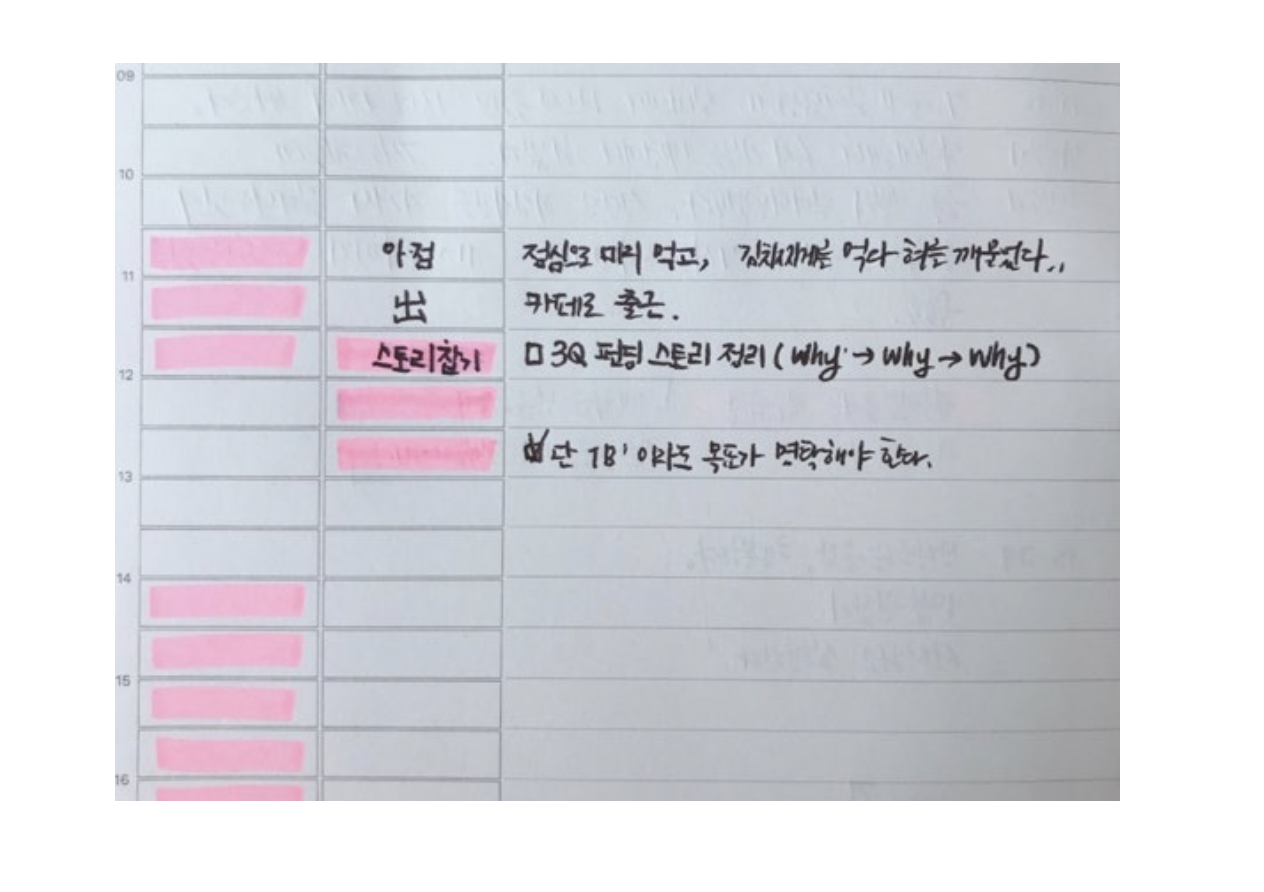 09
10
아점 점심으로 미리 먹고, 김치찌개를 먹다 혀를 깨물었다..
11
出 카페로 출근.
스토리잡기 □ 3Q 펀딩 스토리 정리 (Why → Why → Why)
12
단 1B'이라도 목표가 명확해야 한다.
13
14
15
16